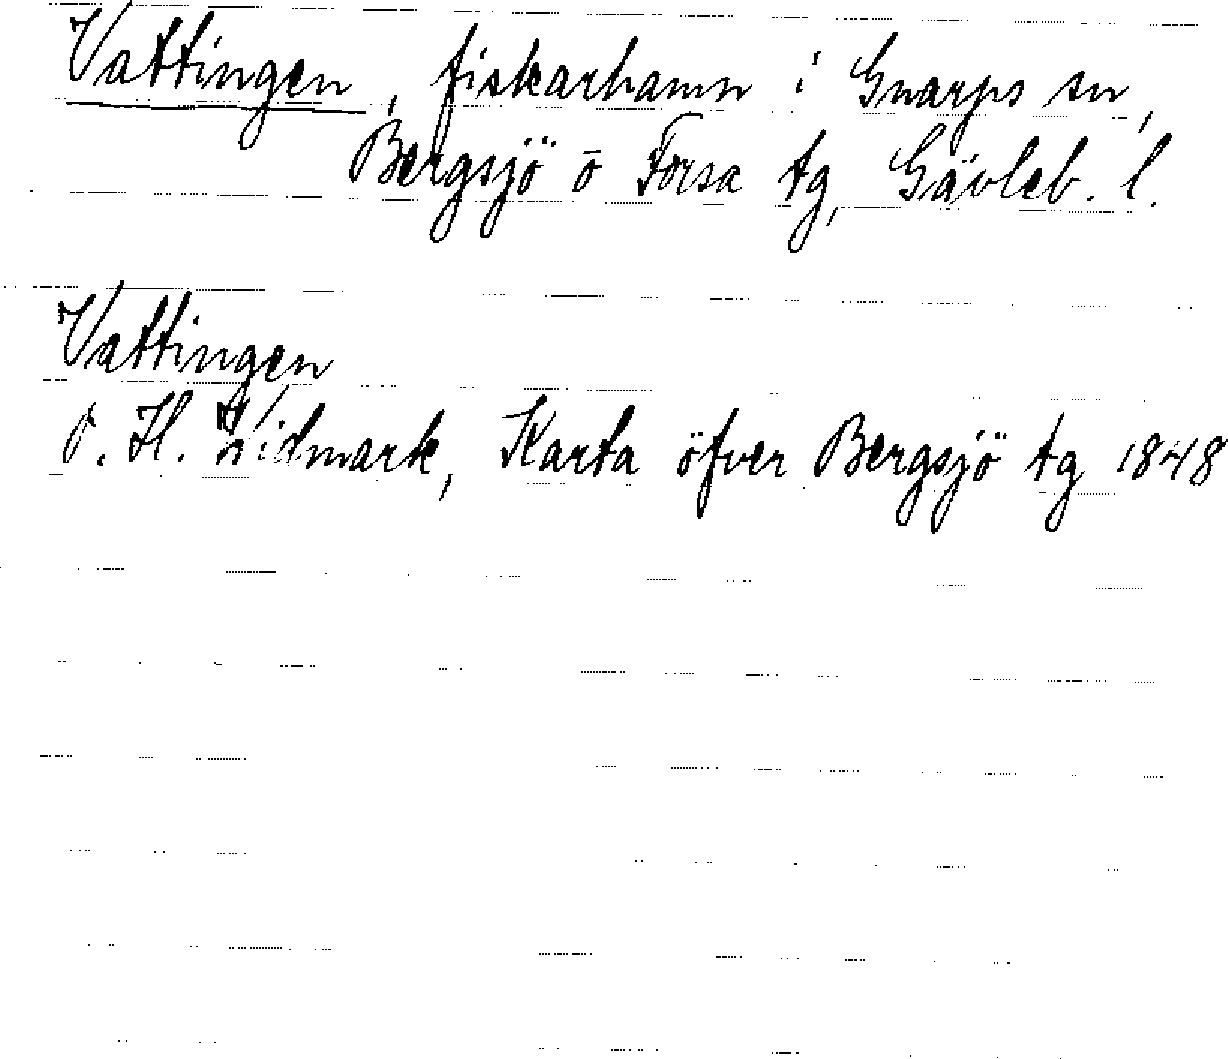 Vattingen, fiskarhamn i Gnarps sn,
Bergsjö o Forsa tg, Gävleb. l.
Vattingen
P. H. Widmark, Karta öfver Bergsjö tg 1848